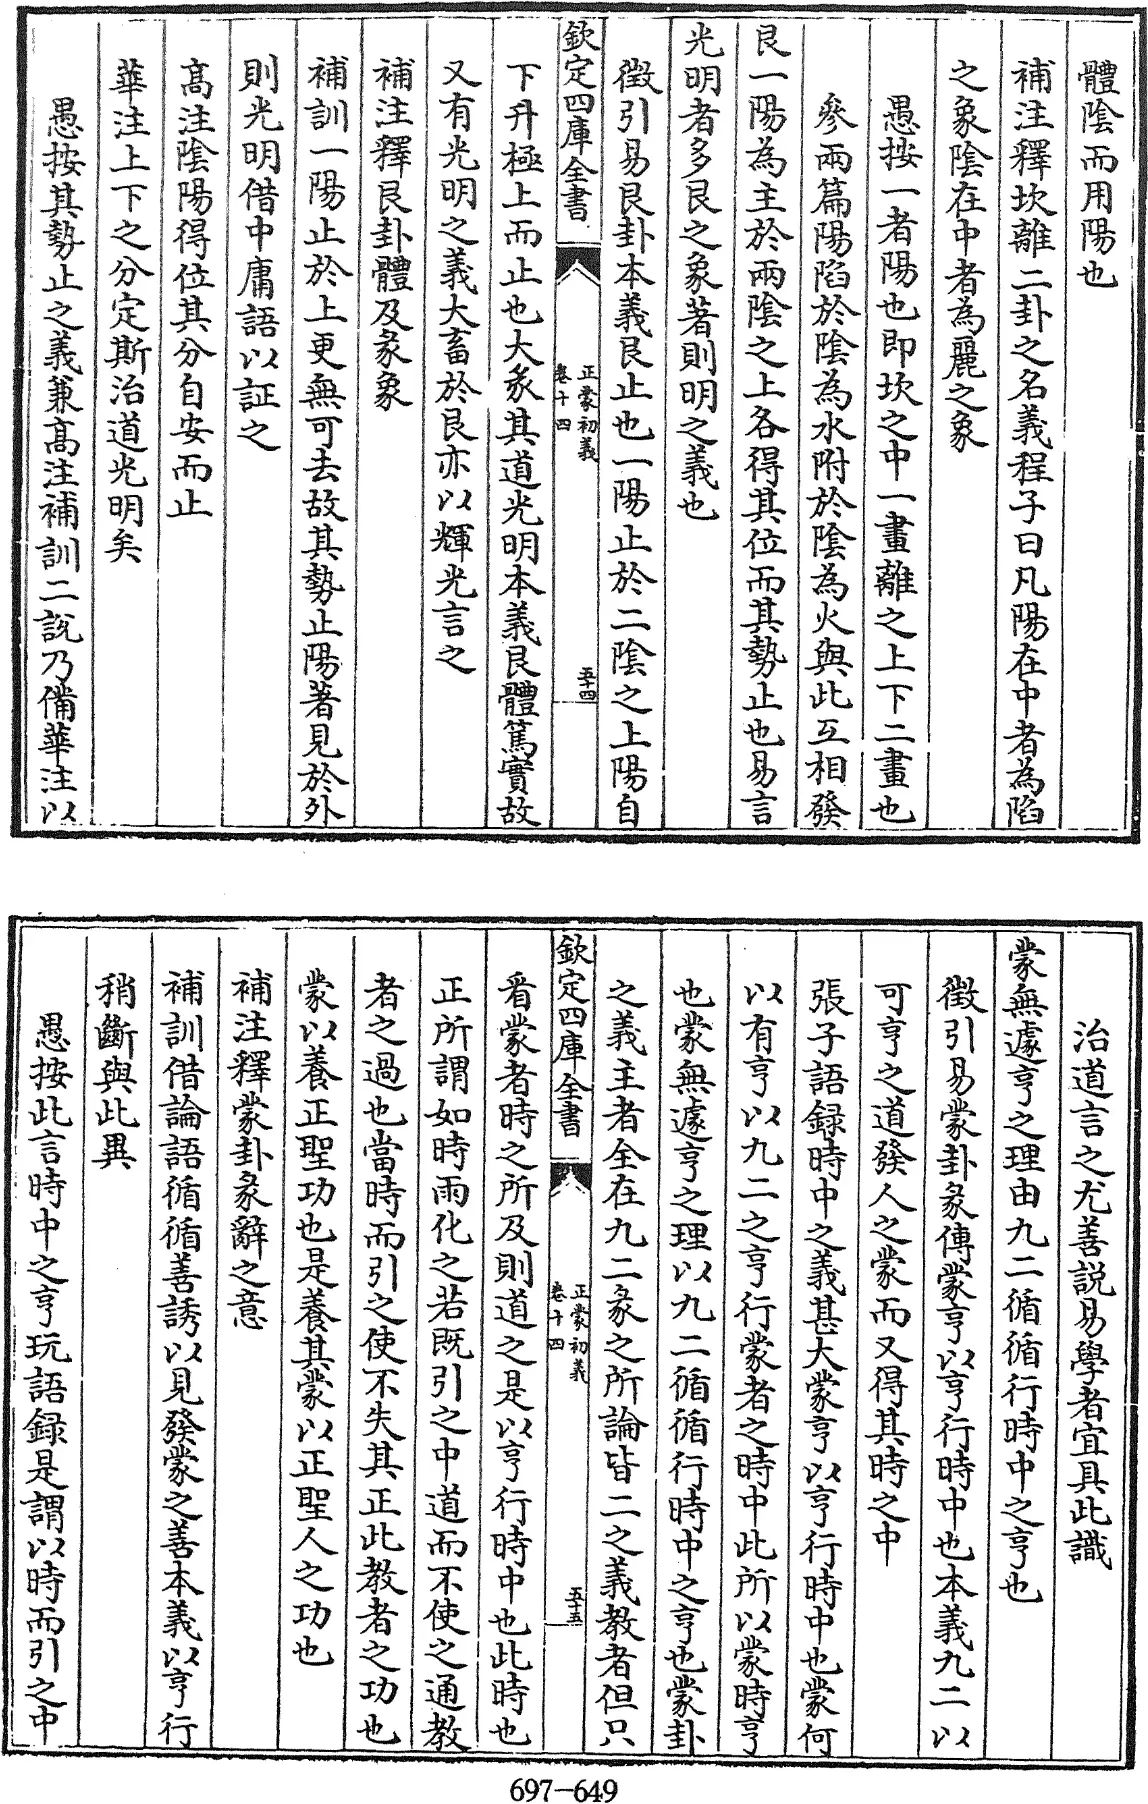 體陰而用陽也
補注釋坎離二卦之名義程子曰凡陽在中者為陷
之象陰在中者為麗之象
愚按一者陽也即坎之中一畫離之上下二畫也
參兩篇陽陷於陰為水附於陰為火與此互相發
艮一陽為主於兩陰之上各得其位而其勢止也易言
光明者多艮之象著則明之義也
徵引易艮卦本義艮止也一陽止於二陰之上陽自
欽定四庫全書
正蒙初義
卷十四
五十四
下升極上而止也大彖其道光明本義艮體篤實故
又有光明之義大畜於艮亦以輝光言之
補注釋艮卦體及彖象
補訓一陽止於上更無可去故其勢止陽著見於外
則光明借中庸語以証之
高注陰陽得位其分自安而止
華注上下之分定斯治道光明矣
愚按其勢止之義兼高注補訓二說乃備華注以
治道言之尤善說易學者宜具此識
蒙無遽亨之理由九二循循行時中之亨也
徵引易蒙卦彖傳蒙亨以亨行時中也本義九二以
可亨之道發人之蒙而又得其時之中
張子語録時中之義甚大蒙亨以亨行時中也蒙何
以有亨以九二之亨行蒙者之時中此所以蒙時亨
也蒙無遽亨之理以九二循循行時中之亨也蒙卦
之義主者全在九二彖之所論皆二之義教者但只
欽定四庫全書
正蒙初義
卷十四
五十五
看蒙者時之所及則道之是以亨行時中也此時也
正所謂如時雨化之若既引之中道而不使之通教
者之過也當時而引之使不失其正此教者之功也
蒙以養正聖功也是養其蒙以正聖人之功也
補注釋蒙卦彖辭之意
補訓借論語循循善誘以見發蒙之善本義以亨行
稍斷與此異
愚按此言時中之亨玩語録是謂以時而引之中
697-649